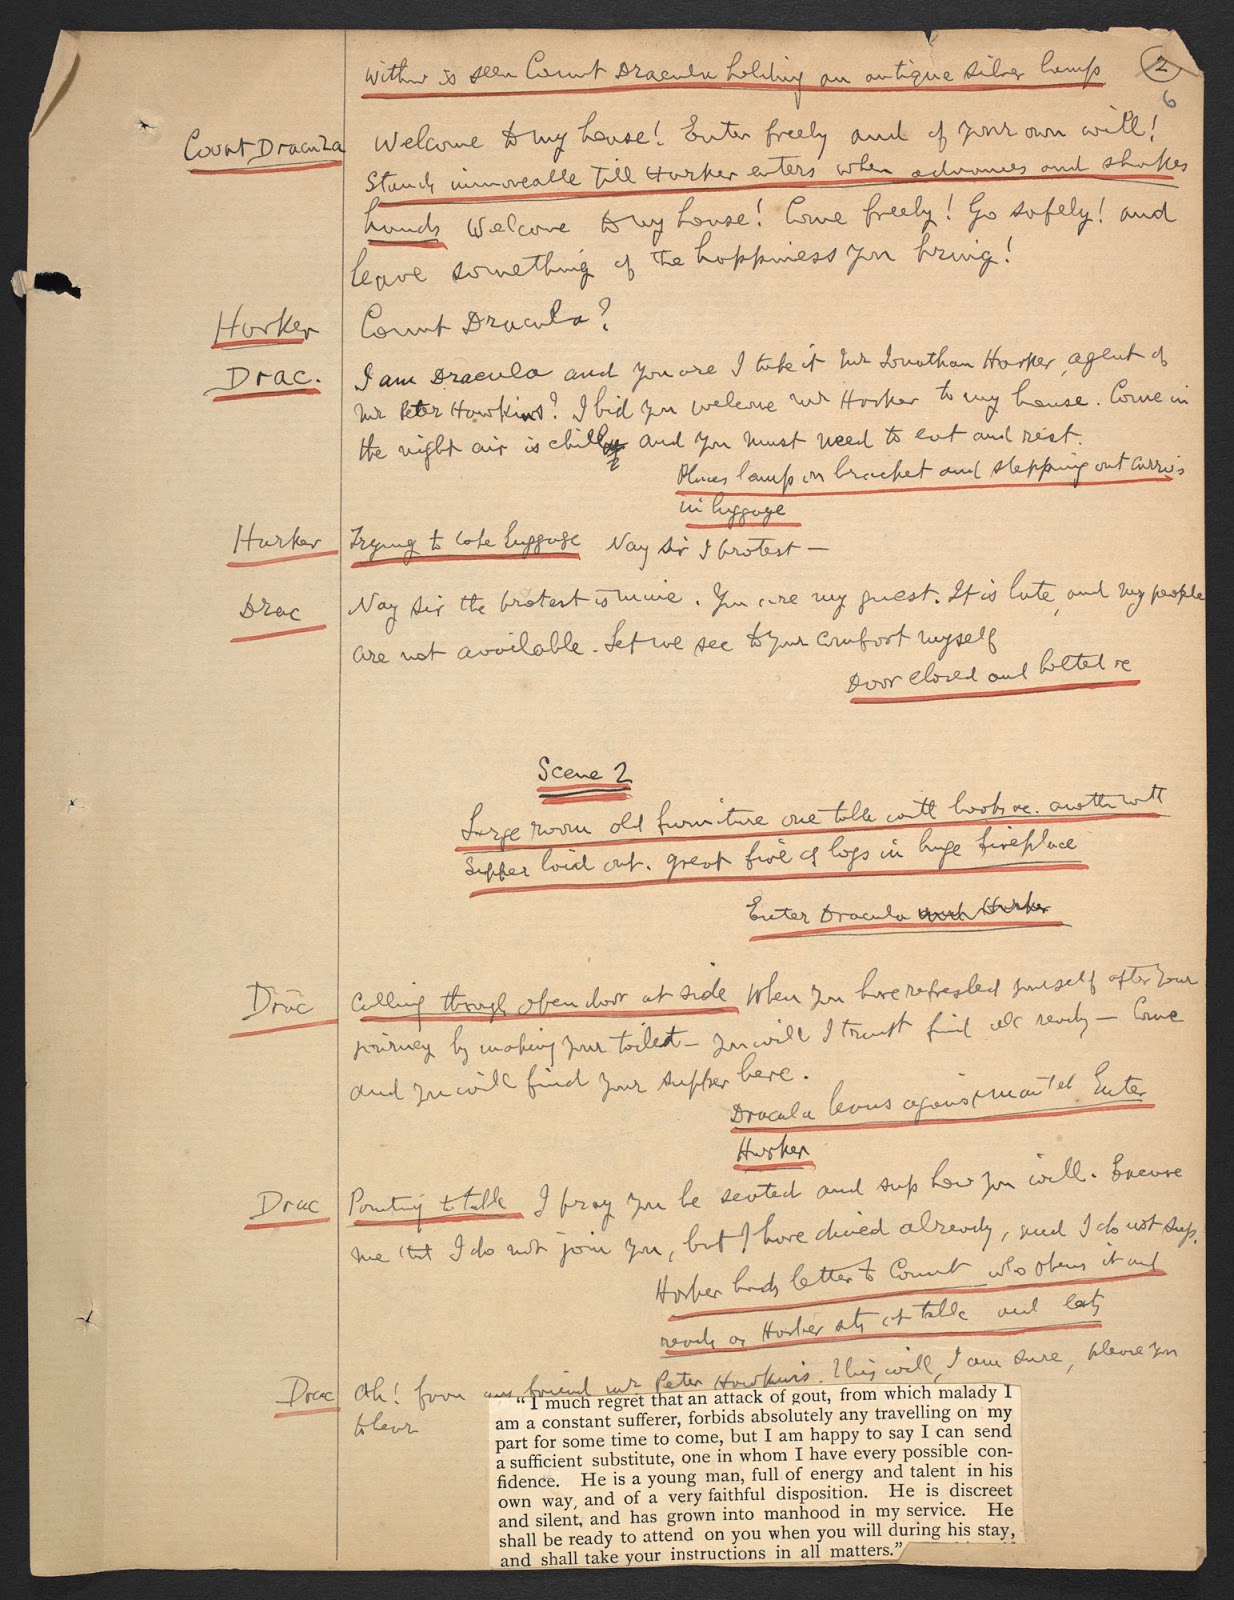 Within is seen Count Dracula holding an antique silver lamp
2
6
Count Dracula Welcome to my house! Enter freely and of your own will!
Stands immoveable till Harker enters when advances and shakes
hands Welcome to my house! Come freely! Go safely! and
leave something of the happiness you bring!
Harker Count Dracula?
Drac. I am Dracula and you are I take it Mr Jonathan Harker, agent of
Mr Peter Hawkins? I bid you welcome Mr Harker to my house. Come in
the night air is chill and you must need to eat and rest.
Places lamp on bracket and stepping out carries
in luggage
Harker Trying to take luggage Nay sir I protest —
Drac Nay sir the protest is mine. You are my guest. It is late, and my people
are not available. Let me see to your comfort myself
Door closed and bolted &c
Scene 2
Large room old furniture one table with books &c. another with
supper laid out. great fire of logs in huge fireplace
Enter Dracula with Harker
Drac Calling through open door at side When you have refreshed yourself after your
journey by making your toilet — you will I trust find all ready — Come
and you will find your supper here.
Dracula leans against mantel Enter
Harker
Drac Pointing to table I pray you be seated and sup how you will. Excuse
me that I do not join you, but I have dined already, and I do not sup.
Harker hands letter to Count who opens it and
reads as Harker sits at table and eats
Drac Ah! from my friend Mr Peter Hawkins. This will, I am sure, please you
to hear
"I much regret that an attack of gout, from which malady I
am a constant sufferer, forbids absolutely any travelling on my
part for some time to come, but I am happy to say I can send
a sufficient substitute, one in whom I have every possible con-
fidence. He is a young man, full of energy and talent in his
own way, and of a very faithful disposition. He is discreet
and silent, and has grown into manhood in my service. He
shall be ready to attend on you when you will during his stay,
and shall take your instructions in all matters."